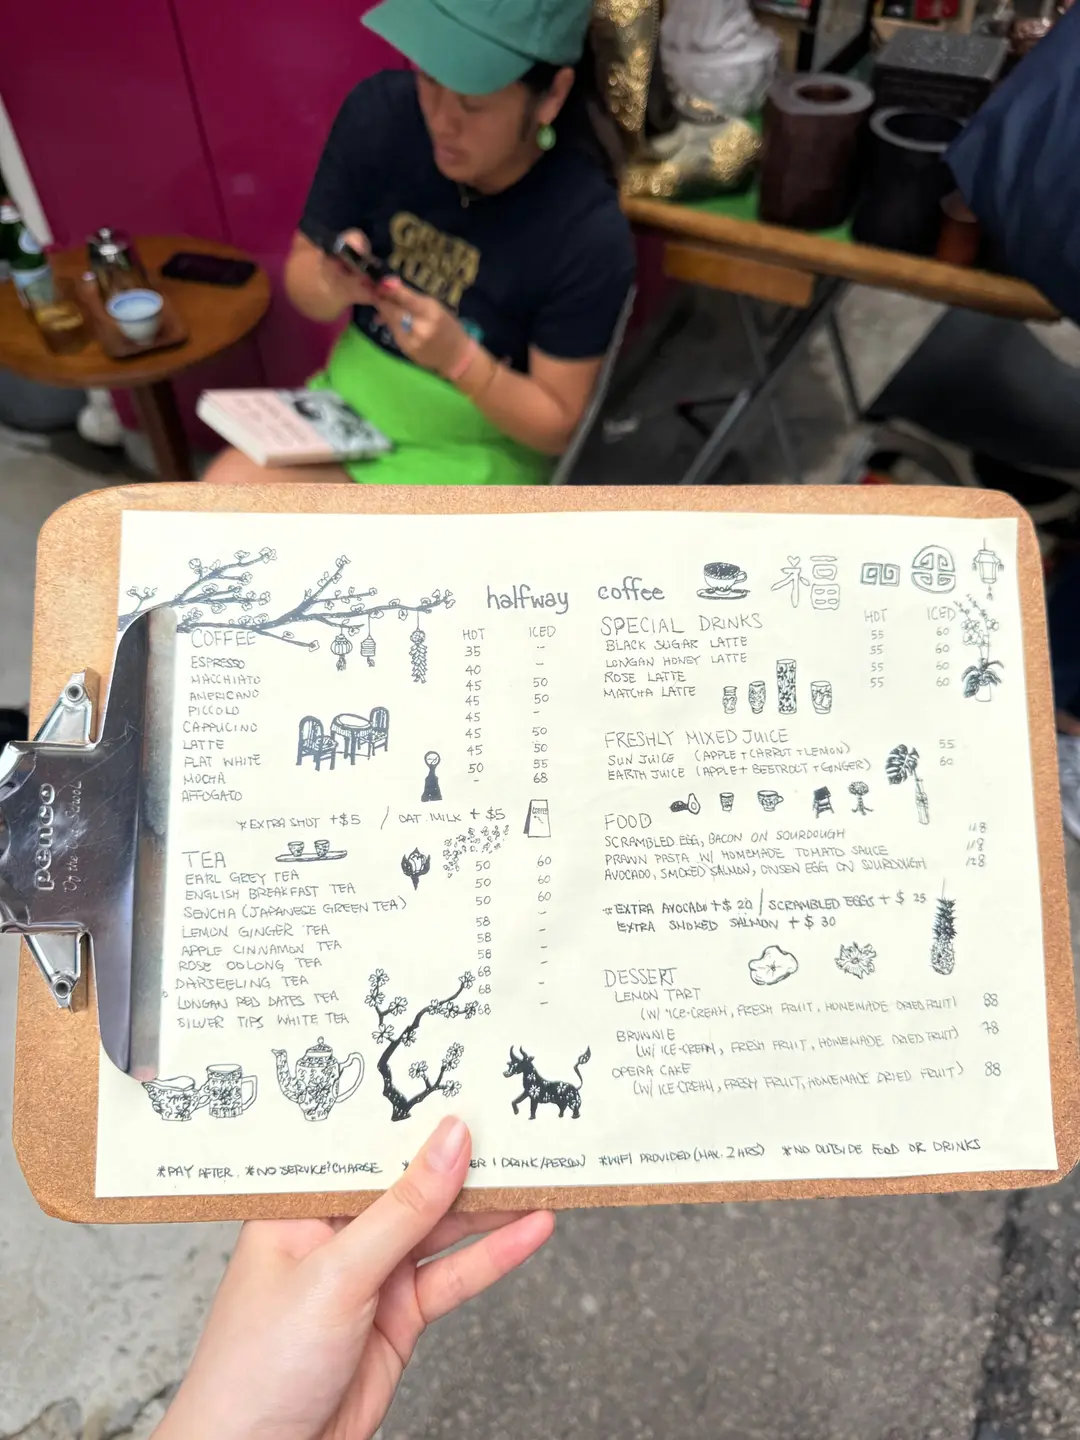 halfway coffee
福
COFFEE HOT ICED
ESPRESSO 35 -
MACCHIATO 40 -
AMERICANO 45 50
PICCOLO 45 50
CAPPUCINO 45 -
LATTE 45 50
FLAT WHITE 45 50
MOCHA 50 55
AFFOGATO - 68
*EXTRA SHOT +$5 / OAT MILK + $5
TEA
EARL GREY TEA 50 60
ENGLISH BREAKFAST TEA 50 60
SENCHA (JAPANESE GREEN TEA) 50 60
LEMON GINGER TEA 58 -
APPLE CINNAMON TEA 58
ROSE OOLONG TEA 58 -
DARJEELING TEA 68 -
LONGAN RED DATES TEA 68 -
SILVER TIPS WHITE TEA 68 -
SPECIAL DRINKS HOT ICED
BLACK SUGAR LATTE 55 60
LONGAN HONEY LATTE 55 60
ROSE LATTE 55 60
MATCHA LATTE 55 60
FRESHLY MIXED JUICE
SUN JUICE (APPLE+CARROT+LEMON) 55
EARTH JUICE (APPLE+BEETROOT+GINGER) 60
FOOD
SCRAMBLED EGG, BACON ON SOURDOUGH 118
PRAWN PASTA W/ HOMEMADE TOMATO SAUCE 118
AVOCADO, SMOKED SALMON, ONSEN EGG ON SOURDOUGH 128
*EXTRA AVOCADO +$ 20 / SCRAMBLED EGGS + $ 25
EXTRA SMOKED SALMON + $ 30
DESSERT
LEMON TART
(W/ ICE-CREAM, FRESH FRUIT, HOMEMADE DRIED FRUIT) 88
BROWNIE
(W/ ICE-CREAM, FRESH FRUIT, HOMEMADE DRIED FRUIT) 78
OPERA CAKE
(W/ ICE CREAM, FRESH FRUIT, HOMEMADE DRIED FRUIT) 88
*PAY AFTER. *NO SERVICE CHARGE 1 DRINK/PERSON) *WIFI PROVIDED (MAX. 2 HRS) *NO OUTSIDE FOOD OR DRINKS
penco